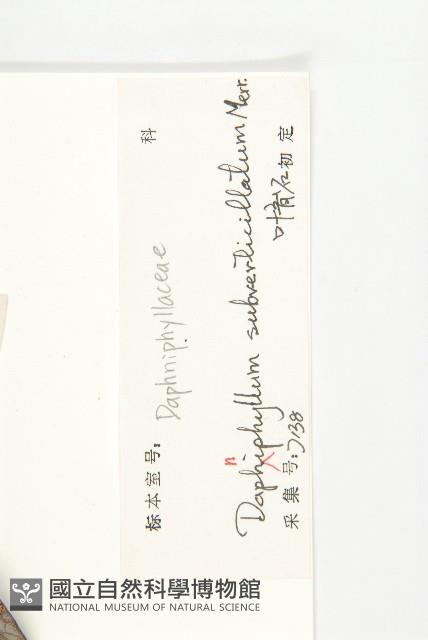 标本室号: Daphniphyllaceae 科
Daphiphyllum subverticillatum Merr.
n
采集号: 7138 叶育石初定
國立自然科學博物館
NATIONAL MUSEUM OF NATURAL SCIENCE